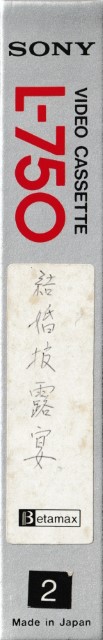 SONY
L-750
VIDEO CASSETTE
結婚披露宴
Betamax
2
Made in Japan